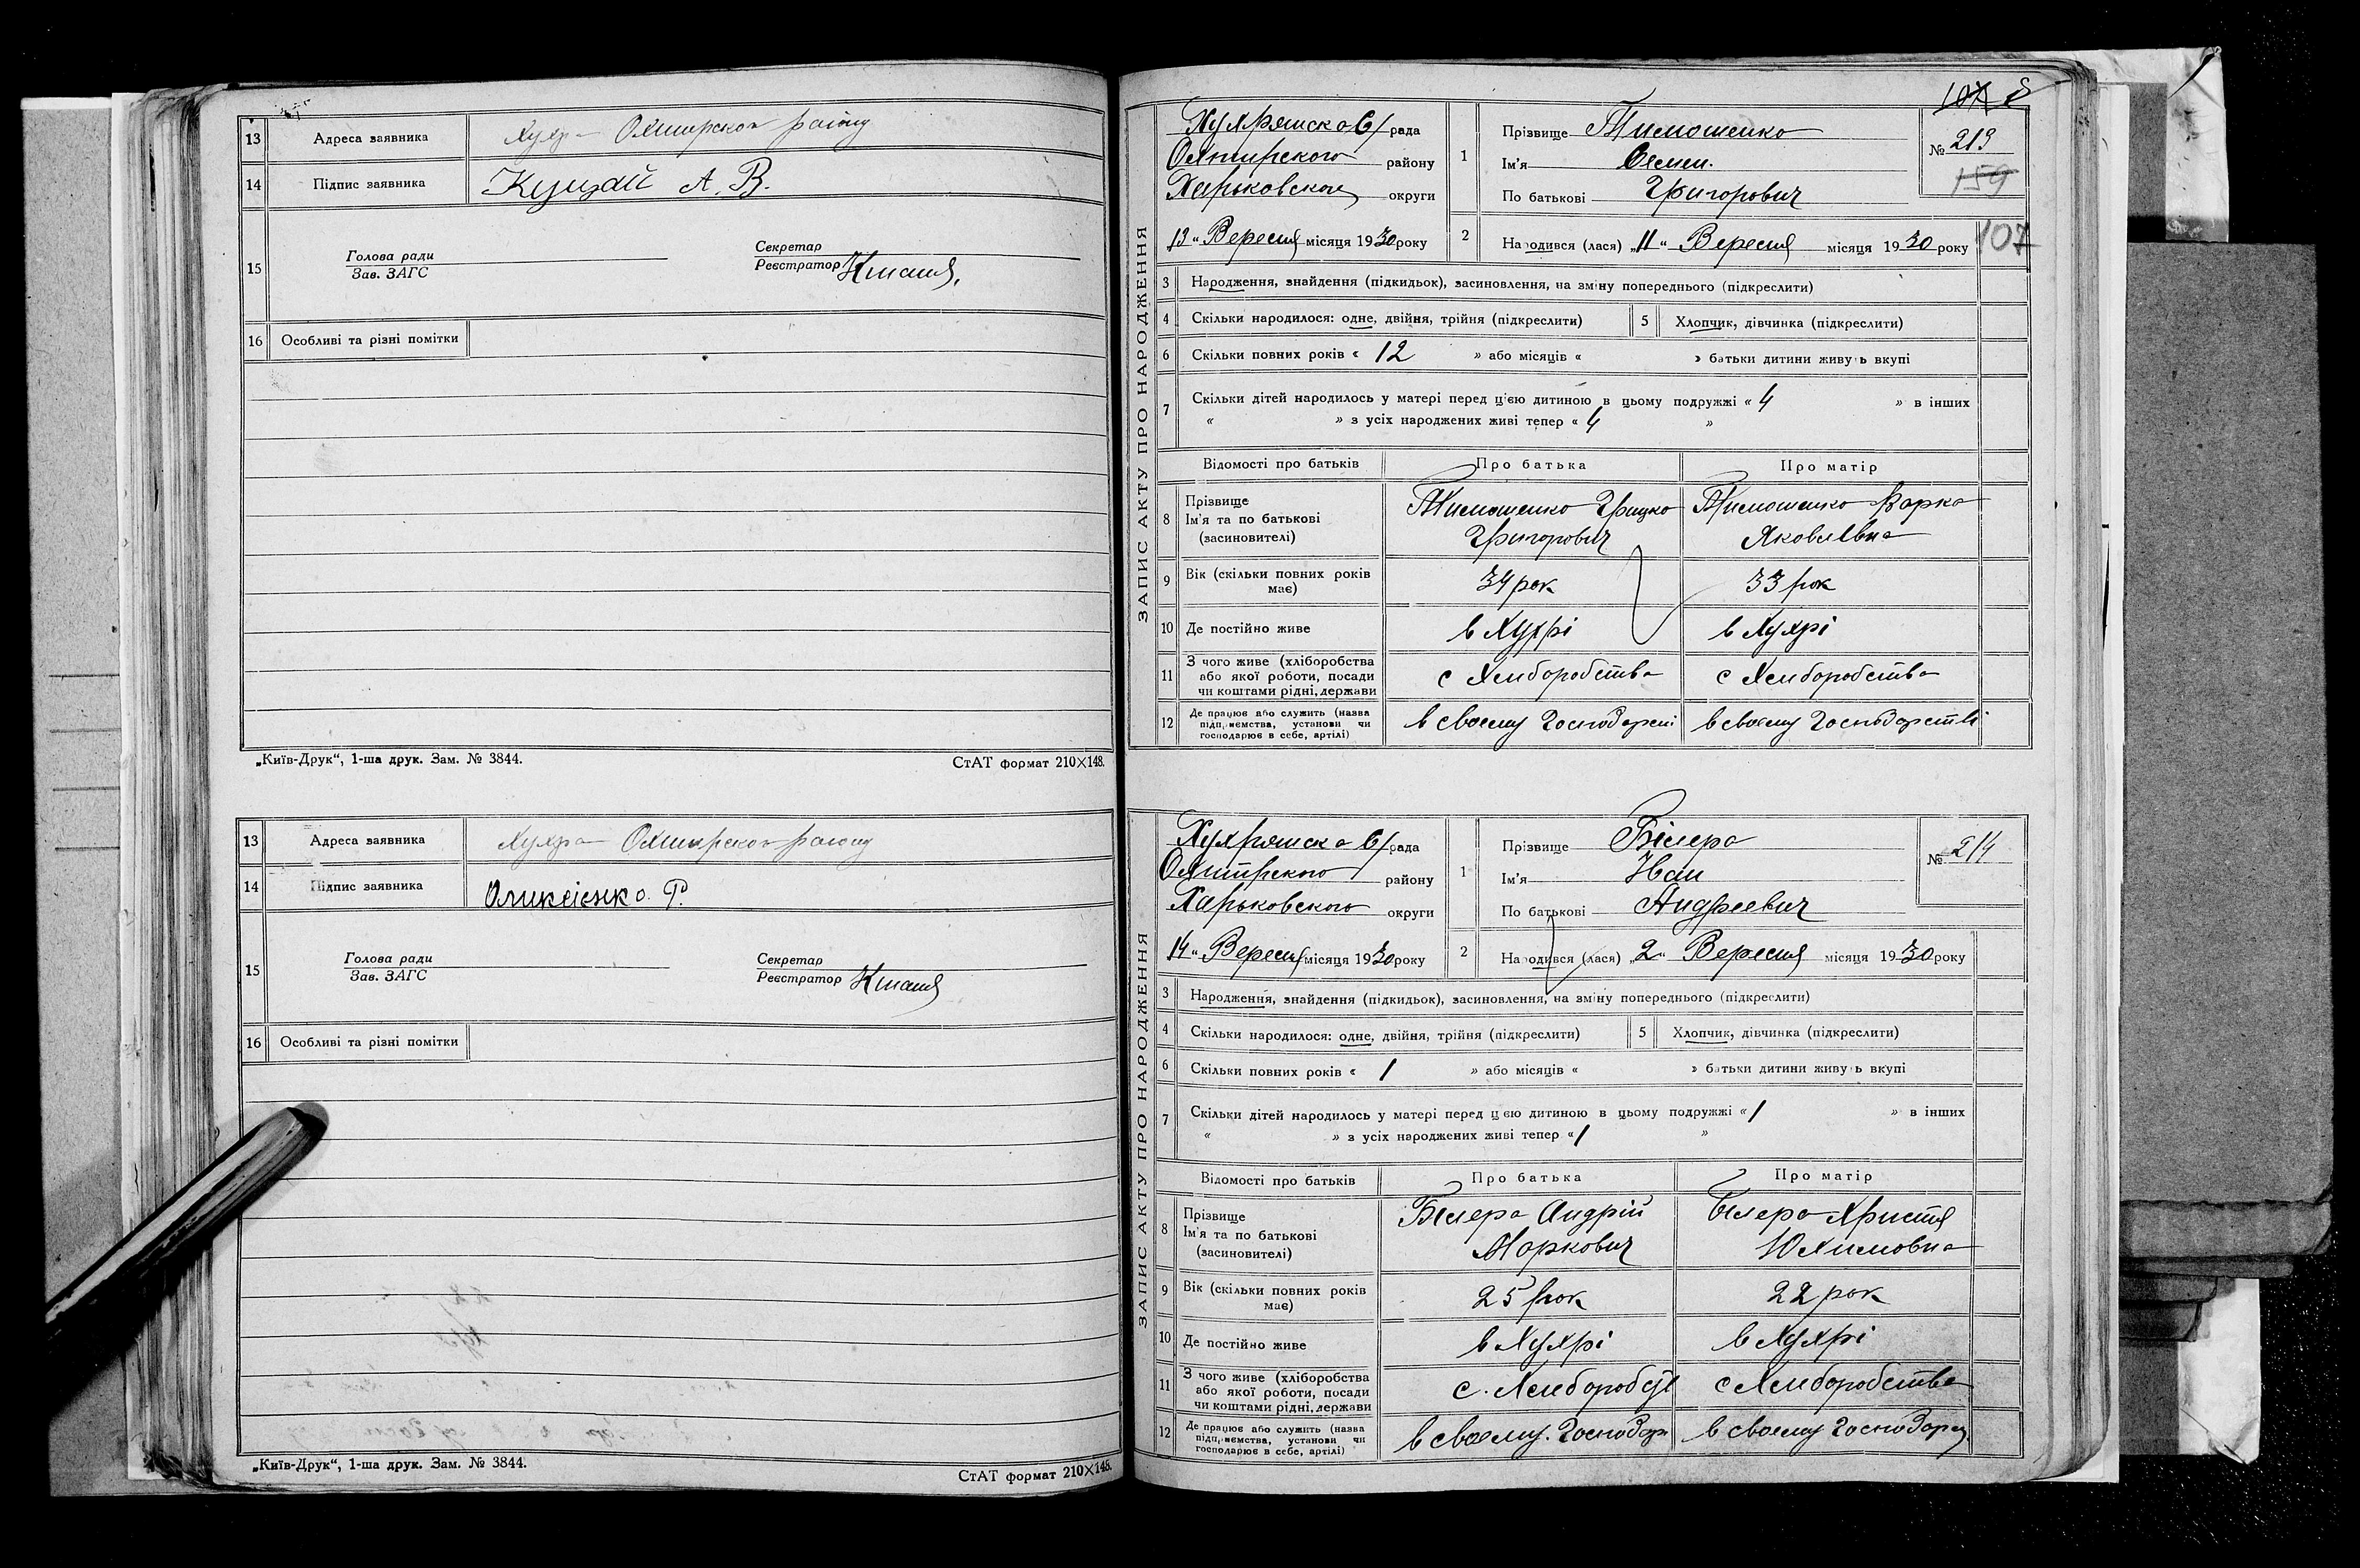 13 Адреса заявника Хухра Охтирскои району
14 Підпис заявника Куцзай А. В.
15 Голова ради
Зав. ЗАГС
Секретар
Реєстратор
16 Особливі та різні помітки
„Київ-Друк“, 1-ша друк. Зам. № 3844. СтАТ формат 210×148.
13 Адреса заявника Хухра Охтирскои району
14 Підпис заявника Оликсієнко. Р.
15 Голова ради
Зав. ЗАГС
Секретар
Реєстратор
16 Особливі та різні помітки
„Київ-Друк“, 1-ша друк. Зам. № 3844. СтАТ формат 210×148.
ЗАПИС АКТУ ПРО НАРОДЖЕННЯ
Хухрянска С/рада
Охтирского району
Харьковского округи
13 „ Вересня місяця 1930 року
1 Прізвище Тимошенко
Ім'я Семен.
По батькові Григорович
№ 213
159
107
2 Народився (лася) „11“ Вересня місяця 1930 року
3 Народження, знайдення (підкидьок), засиновлення, на зміну попереднього (підкреслити)
4 Скільки народилося: одне, двійня, трійня (підкреслити) 5 Хлопчик, дівчинка (підкреслити)
6 Скільки повних років « 12 » або місяців « » батьки дитини живуть вкупі
7 Скільки дітей народилось у матері перед цією дитиною в цьому подружжі « 4 » в інших
« » з усіх народжених живі тепер « 4 »
Відомості про батьків Про батька Про матір
8 Прізвище
Ім'я та по батькові
(засиновителі)
Тимошенко Грицко
Григорович
Тимошенко Варка
Яковлівна
9 Вік (скільки повних років
має) 34 рок 33 рок
10 Де постійно живе в Хухрі в Хухрі
11 З чого живе (хліборобства
або якої роботи, посади
чи коштами рідні, держави
с Хлиборобства с Хлиборобства
12 Де працює або служить (назва
підприємства, установи чи
господарює в себе, артілі)
в своему Господарсі в своему Господарстві
ЗАПИС АКТУ ПРО НАРОДЖЕННЯ
Хухрянска С/рада
Охтирского району
Харьковского округи
14 „ Вересня місяця 1930 року
1 Прізвище Білера
Ім'я Иван
По батькові Андреевич
№ 214
2 Народився (лася) „2“ Вересня місяця 1930 року
3 Народження, знайдення (підкидьок), засиновлення, на зміну попереднього (підкреслити)
4 Скільки народилося: одне, двійня, трійня (підкреслити) 5 Хлопчик, дівчинка (підкреслити)
6 Скільки повних років « 1 » або місяців « » батьки дитини живуть вкупі
7 Скільки дітей народилось у матері перед цією дитиною в цьому подружжі « 1 » в інших
« » з усіх народжених живі тепер « 1 »
Відомості про батьків Про батька Про матір
8 Прізвище
Ім'я та по батькові
(засиновителі)
Білера Андрій
Маркович
Білера Христя
Юхимовна
9 Вік (скільки повних років
має) 25 рок 22 рок
10 Де постійно живе в Хухрі в Хухрі
11 З чого живе (хліборобства
або якої роботи, посади
чи коштами рідні, держави
с. Хлиборобст с Хлиборобства
12 Де працює або служить (назва
підприємства, установи чи
господарює в себе, артілі)
в своему. Господар в своему Господарс